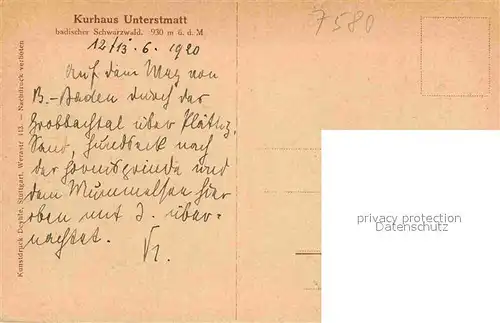 Kurhaus Unterstmatt
badischer Schwarzwald. 930 m ü. d. M
7580
12/13. 6. 1920
Auf dem Weg von
B.-Baden durch das
Grobbachtal über Plättig,
Sand, Hundseck nach
der Hornisgrinde und
dem Mummelsee hier
oben mit J. über-
nachtet.
Kunstdruck Deyhle, Stuttgart, Werastr 113. — Nachdruck verboten
privacy protection
Datenschutz